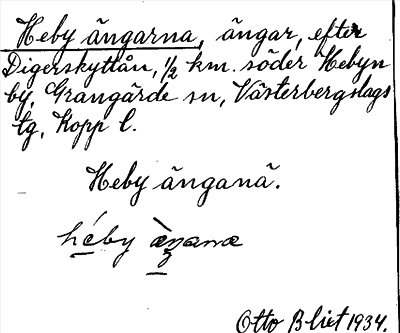 Heby ängarna, ängar, efter
Digerskyttån, 1/2 km. söder Hebyn
by, Grangärde sn, Västerbergslags
tg, Kopp l.
Heby änganä.
héby
Otto Blixt 1934.